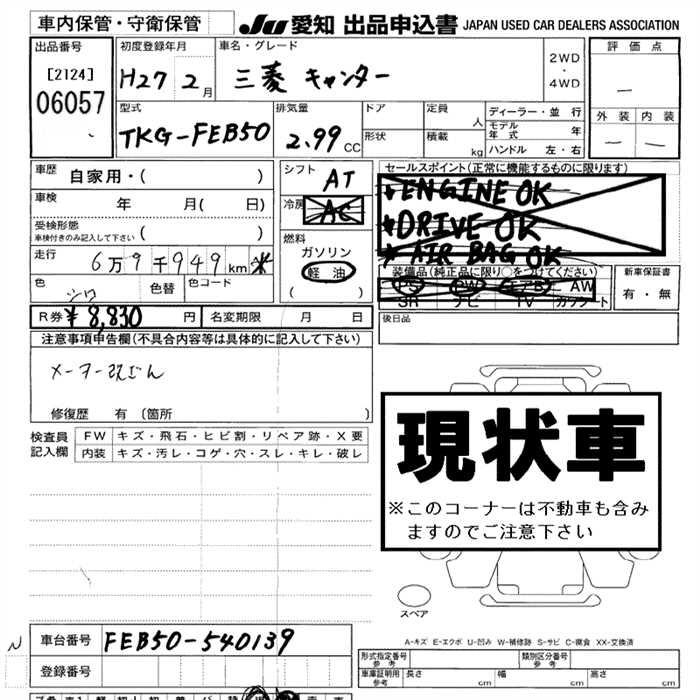 車内保管・守衛保管
JU 愛知 出品申込書 JAPAN USED CAR DEALERS ASSOCIATION
出品番号
[2124]
06057
初度登録年月
H27 2月
車名・グレード
三菱 キャンター
2WD
・
4WD
評価点
—
外装 内装
— —
型式
TKG-FEB50
排気量
2.99 CC
ドア
形状
定員
人
積載
kg
ディーラー・並行
モデル年式 年
ハンドル 左・右
車歴 自家用・( )
車検 年 月( 日)
受検形態
車検付きのみ記入して下さい ( )
走行 6万9千949km
色 シロ
色替
色コード
R券 ¥8,830円
名変期限 月 日
シフト AT
冷房 AC
燃料
ガソリン
軽油
( )
セールスポイント(正常に機能するものに限ります)
ENGINE OK
*DRIVE OK
* AIR BAG OK
装備品(純正品に限り○をつけてください)
PS PW エアB AW
SR ナビ TV カワシート
新車保証書
有・無
後日品
注意事項申告欄(不具合内容等は具体的に記入して下さい)
修復歴 有 〔箇所 〕
検査員記入欄
FW キズ・飛石・ヒビ割・リペア跡・X要
内装 キズ・汚レ・コゲ・穴・スレ・キレ・破レ
現状車
※このコーナーは不動車も含み
ますのでご注意下さい
スペア
A-キズ E-エクボ U-凹み W-補修跡 S-サビ C-腐食 XX-交換済
車台番号 FEB50-540139
登録番号
形式指定番号
参考
類別区分番号
参考
車庫証明用
参考
長さ cm
幅 cm
高さ cm